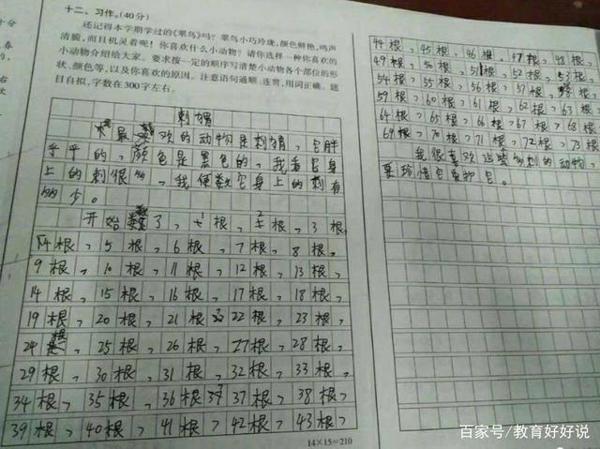 十二、习作。(40分)
还记得本学期学过的《翠鸟》吗?翠鸟小巧玲珑,颜色鲜艳,鸣声
清脆,而且机灵着呢!你喜欢什么小动物?请你选择一种你喜欢的
小动物介绍给大家。要求按一定的顺序写清楚小动物各个部位的形
状、颜色等,以及你喜欢的原因。注意语句通顺、连贯,用词正确。题
目自拟,字数在300字左右。
刺猬
我最喜欢的动物是刺猬,它胖
乎乎的,颜色是黑色的,我看它身
上的刺很多,我便数它身上的刺有
多少。
开始数了,1根,2根,3根,
4根,5根,6根,7根,8根,
9根,10根,11根,12根,13根,
14根,15根,16根,17根,18根,
19根,20根,21根,22根,23根,
24根,25根,26根,27根,28根,
29根,30根,31根,32根,33根,
34根,35根,36根,37根,38根,
39根,40根,41根,42根,43根,
14×15=210
44根,45根,46根,47根,48根,
49根,50根,51根,52根,53根,
54根,55根,56根,57根,58根,
59根,60根,61根,62根,63根,
64根,65根,66根,67根,68根,
69根,70根,71根,72根,73根,
我很喜欢这些多刺的动物,
要珍惜它爱护它。
百家号/教育好好说